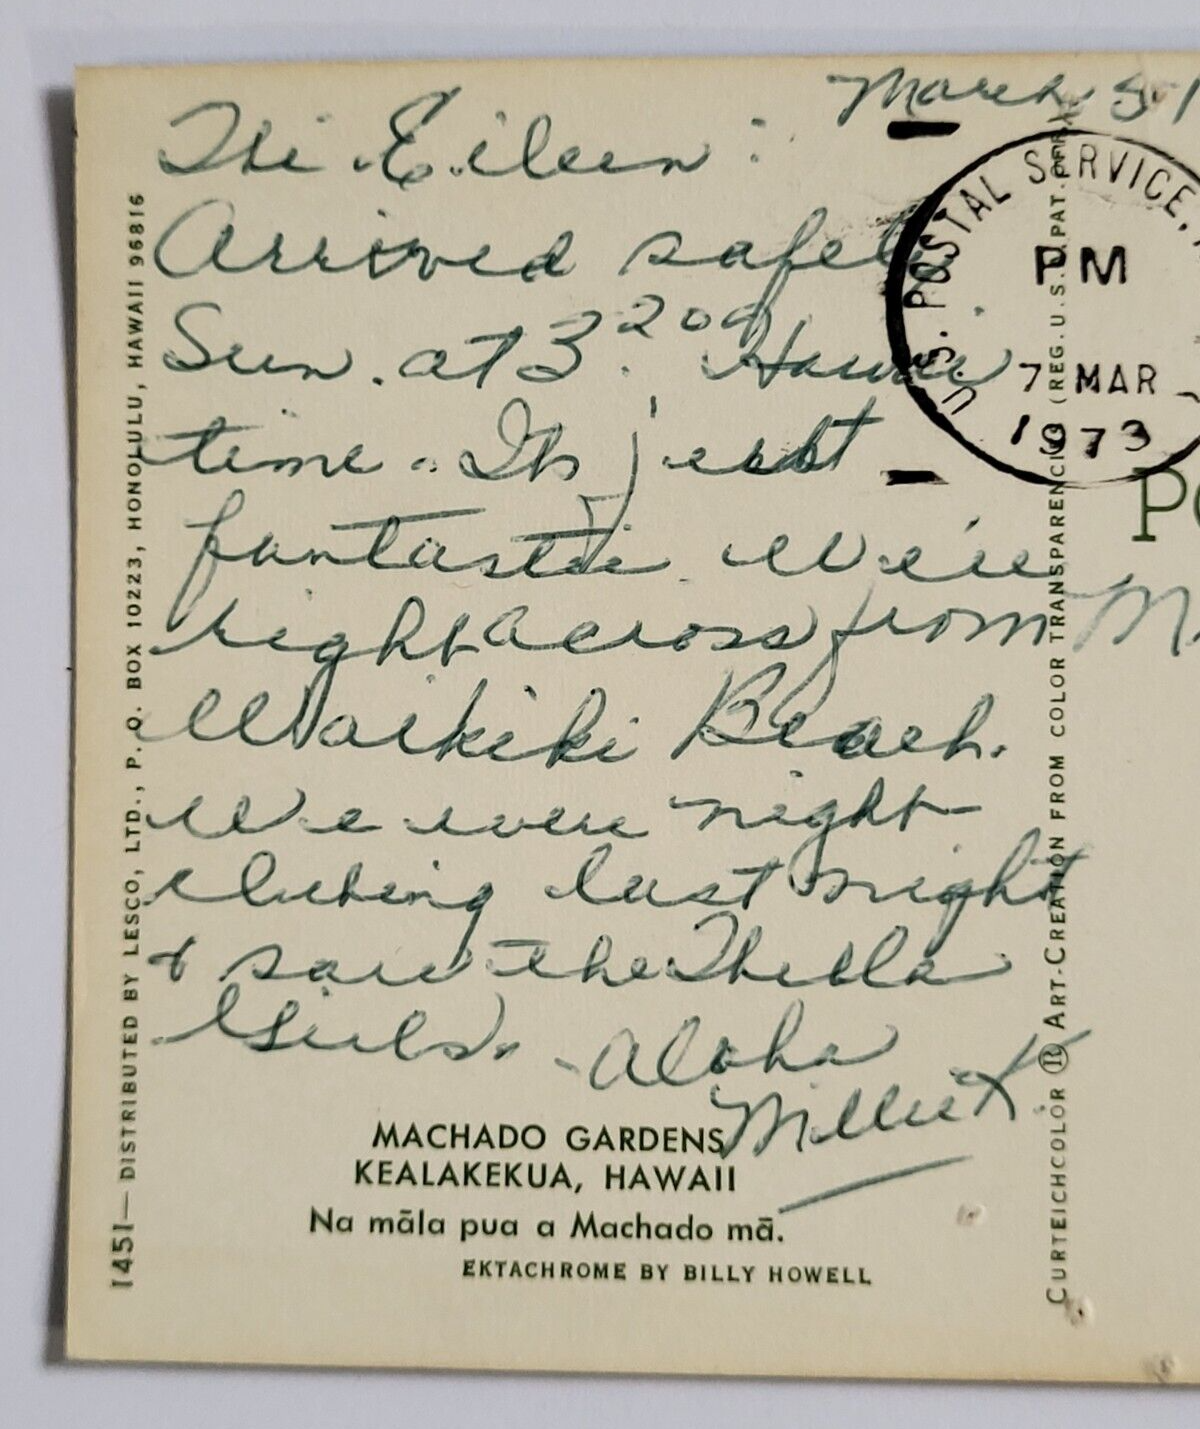 March 5
Hi Eileen:
Arrived safely
Sun. at 3²⁰ Hawaii
time. Its just
fantastic. We're
right across from
Waikiki Beach.
We were night
clubing last night
& saw the
Girls. - Aloha
Millie K.
MACHADO GARDENS
KEALAKEKUA, HAWAII
Na māla pua a Machado mā.
EKTACHROME BY BILLY HOWELL
1451—DISTRIBUTED BY LESCO, LTD., P. O. BOX 10223, HONOLULU, HAWAII 96816
CURTEICHCOLOR ® ART-CREATION FROM COLOR TRANSPARENCIES (REG. U.S.A. PAT. OFF.)
U.S. POSTAL SERVICE,
PM
7 MAR
1973
PO
M